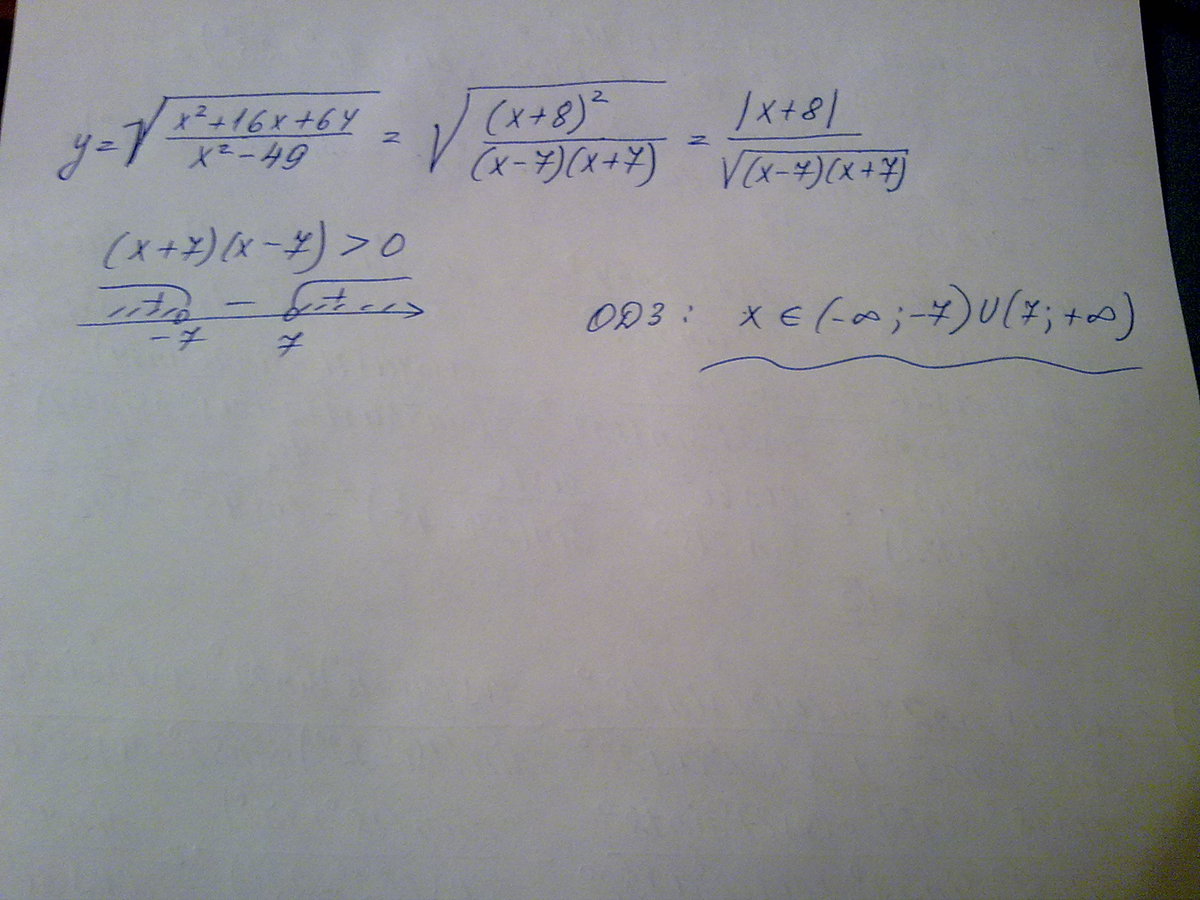 y = √((x²+16x+64)/(x²-49)) = √((x+8)²/((x-7)(x+7))) = |x+8|/√((x-7)(x+7))
(x+7)(x-7) > 0
+ − +
-7 7
ОДЗ: x ∈ (-∞; -7) ∪ (7; +∞)